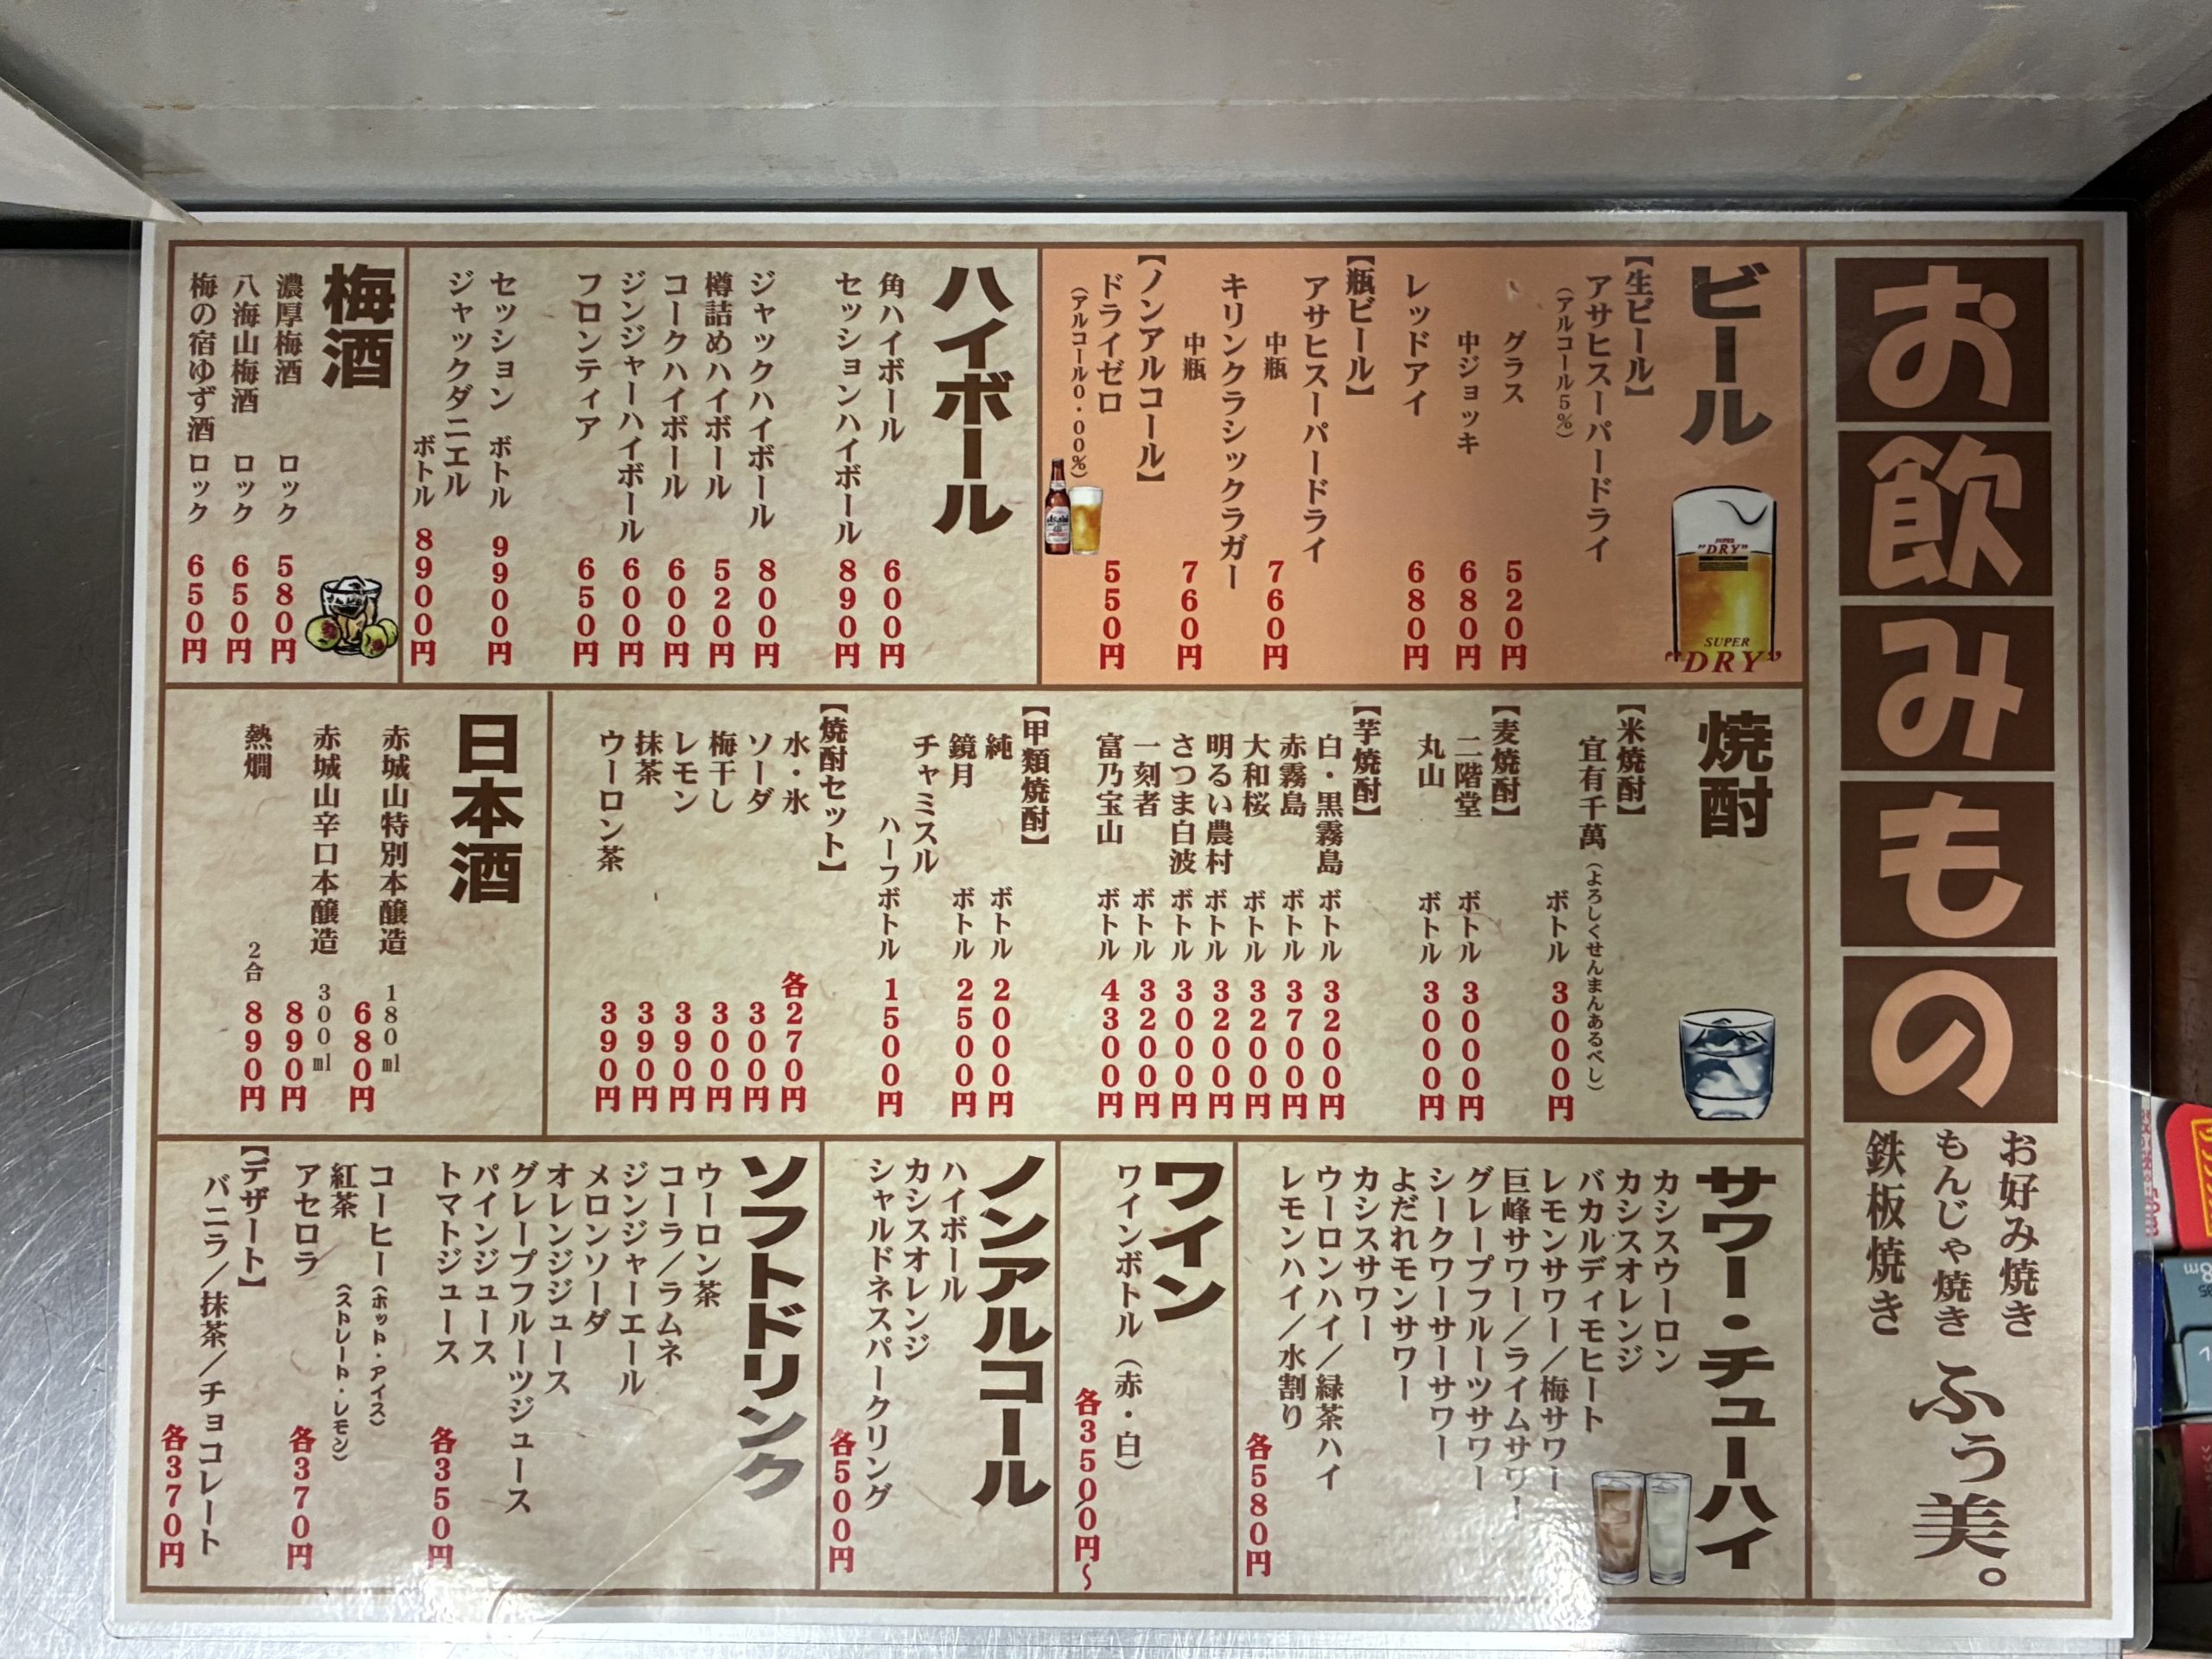 お飲みもの
お好み焼き
もんじゃ焼き
鉄板焼き
ふう美。
ビール
【生ビール】
アサヒスーパードライ
（アルコール5％）
グラス 520円
中ジョッキ 680円
レッドアイ 680円
【瓶ビール】
アサヒスーパードライ
中瓶 760円
キリンクラシックラガー
中瓶 760円
【ノンアルコール】
ドライゼロ 550円
（アルコール0.00％）
SUPER
"DRY"
SUPER
"DRY"
Asahi
ハイボール
角ハイボール 600円
セッションハイボール 890円
ジャックハイボール 800円
樽詰めハイボール 520円
コークハイボール 600円
ジンジャーハイボール 600円
フロンティア 650円
セッション ボトル 9900円
ジャックダニエル
ボトル 8900円
梅酒
濃厚梅酒 ロック 580円
八海山梅酒 ロック 650円
梅の宿ゆず酒 ロック 650円
焼酎
【米焼酎】
宜有千萬（よろしくせんまんあるべし）
ボトル 3000円
【麦焼酎】
二階堂 ボトル 3000円
丸山 ボトル 3000円
【芋焼酎】
白・黒霧島 ボトル 3200円
赤霧島 ボトル 3700円
大和桜 ボトル 3200円
明るい農村 ボトル 3200円
さつま白波 ボトル 3000円
一刻者 ボトル 3200円
富乃宝山 ボトル 4300円
【甲類焼酎】
純 ボトル 2000円
鏡月 ボトル 2500円
チャミスル
ハーフボトル 1500円
【焼酎セット】
水・氷 各270円
ソーダ 300円
梅干し 300円
レモン 390円
抹茶 390円
ウーロン茶 390円
日本酒
赤城山特別本醸造 180ml
680円
赤城山辛口本醸造 300ml
890円
熱燗 2合 890円
サワー・チューハイ
カシスウーロン
カシスオレンジ
バカルディモヒート
レモンサワー／梅サワー
巨峰サワー／ライムサワー
グレープフルーツサワー
シークワーサーサワー
よだれモンサワー
カシスサワー
ウーロンハイ／緑茶ハイ
レモンハイ／水割り
各580円
ワイン
ワインボトル（赤・白）
各3500円～
ノンアルコール
ハイボール
カシスオレンジ
シャルドネスパークリング
各500円
ソフトドリンク
ウーロン茶
コーラ／ラムネ
ジンジャーエール
メロンソーダ
オレンジジュース
グレープフルーツジュース
パインジュース
トマトジュース
各350円
コーヒー（ホット・アイス）
紅茶（ストレート・レモン）
アセロラ
各370円
【デザート】
バニラ／抹茶／チョコレート
各370円